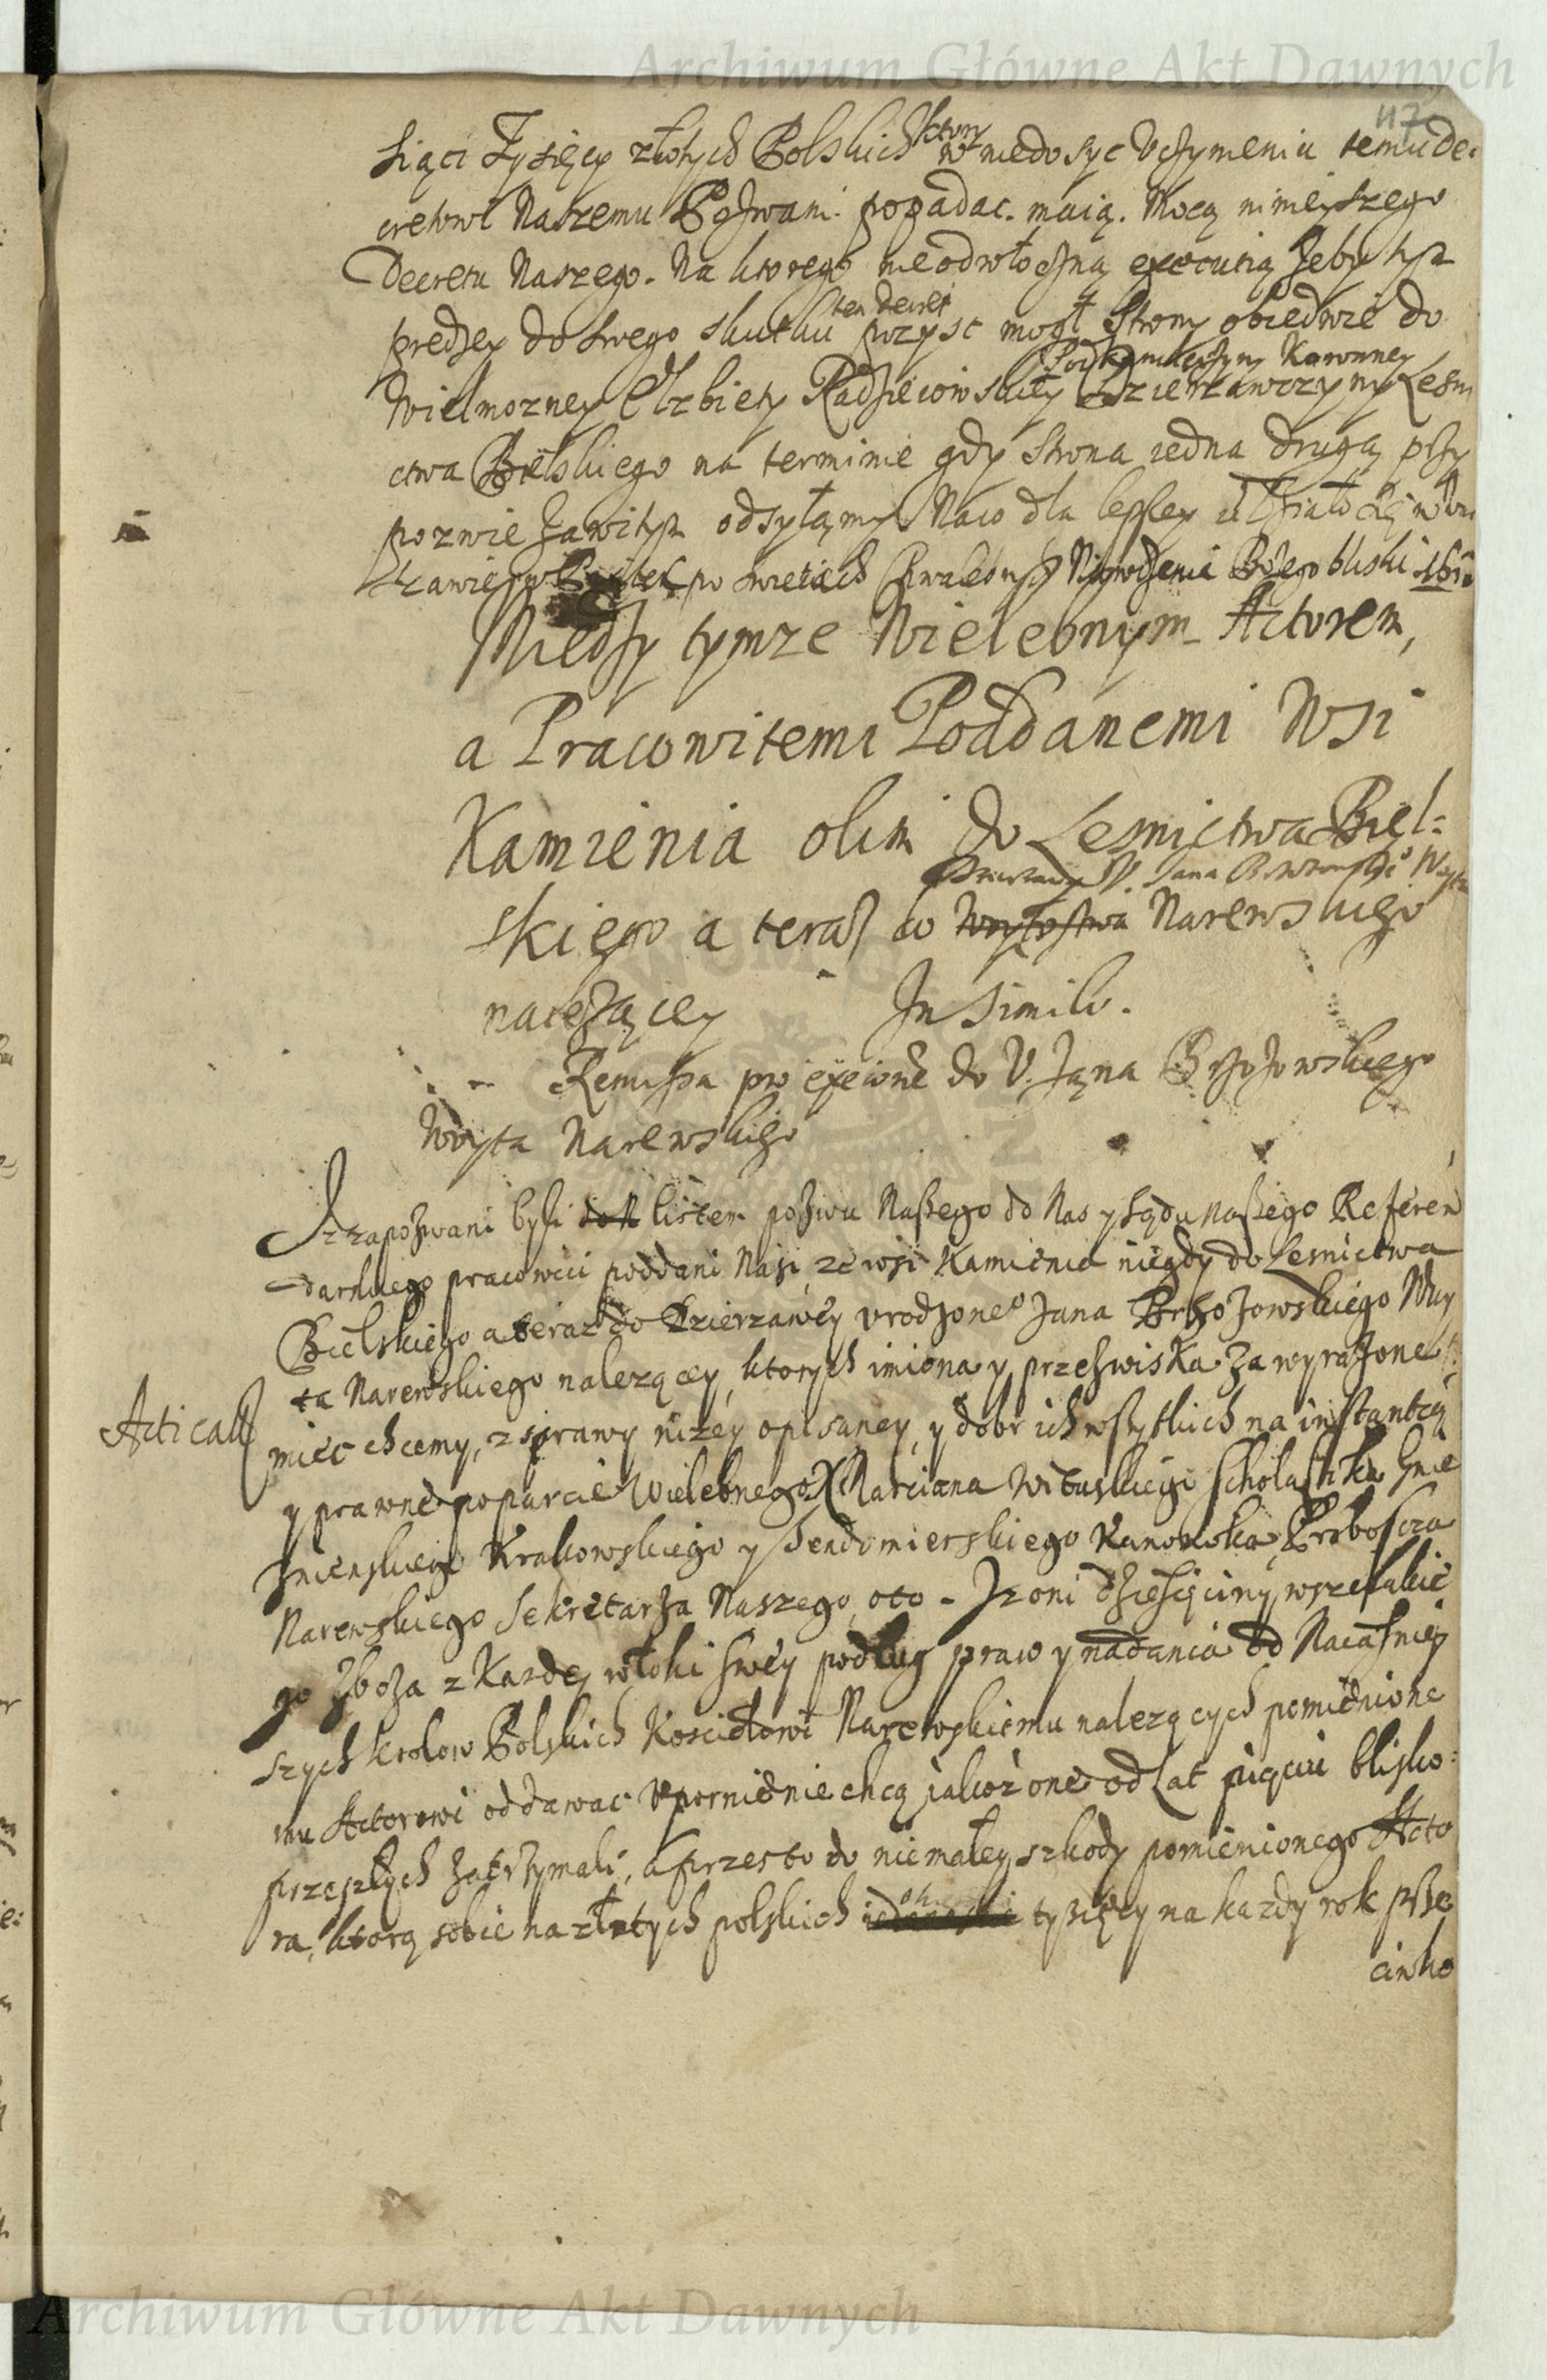 Archiwum Główne Akt Dawnych
117
siąci Tysięcy złotych Polskich ktory w niedosyc Uczynieniu temu de-
cretowi Naszemu Pozwani popadac maią. Mocą ninieyszego
Decretu Naszego. Na ktorego nieodwłoczną executią żeby tym
prędzey do swego skutku ten decret przysc mogł Strony obiedwie do
Wielmozney Elzbiety Radzieiowskiey Podkomorzyny Koronney Dzierzawczyny Lesni
ctwa Bielskiego na terminie gdy strona iedna drugą przy
pozwie zawitym odsyłamy. Działo się w
po swietach Narodzenia Bożego bliski
Miedzy tymze Wielebnym Actorem,
a Pracowitemi Poddanemi Wsi
Kamienia olim do Lesnictwa Biel=
Dzierzawy V. Jana Brzozowski° Woyta
skiego a teraz do Woytostwa Narewskiego
nalezącey In Simili.
Remissa pro executione do V. Jana Brzozowskiego
Woyta Narewskiego
Iz zapozwani byli listem pozwu Naszego do Nas y sądu naszego Referen
darskiego pracowici poddani Nasi ze wsi Kamienia niegdy do Lesnictwa
Bielskiego a teraz do Dzierzawy vrodzone° Jana Brzozowskiego Woy
ta Narewskiego nalezącey, ktorych imiona y przezwiska za wyrażone
Acticat
miec chcemy, z sprawy nizey opisaney, y dobr ich wszytkich na instantią
y prawne poparcie Wielebnego X Marciana Wituskiego Scholastika Gnie
znienskiego Krakowskiego y Sendomierskiego Kanonika, Proboscza
Narewskiego Sekretarza Naszego, oto. Iz oni dziesięciny wszelakie
go zboża z kazdey włoki swey podług praw y nadania od Naiasniey
szych krolow Polskich Kosciołowi Narewskiemu nalezących pomienione
mu Actorowi oddawac Vpornie niechcą iakoż one od Lat pięciu blisko
przeszłych zatrzymali, a przesto do niemałey szkody pomienionego Acto
ra, ktorą sobie na złotych polskich tysięcy na kazdy rok prze
ciwko
Archiwum Główne Akt Dawnych